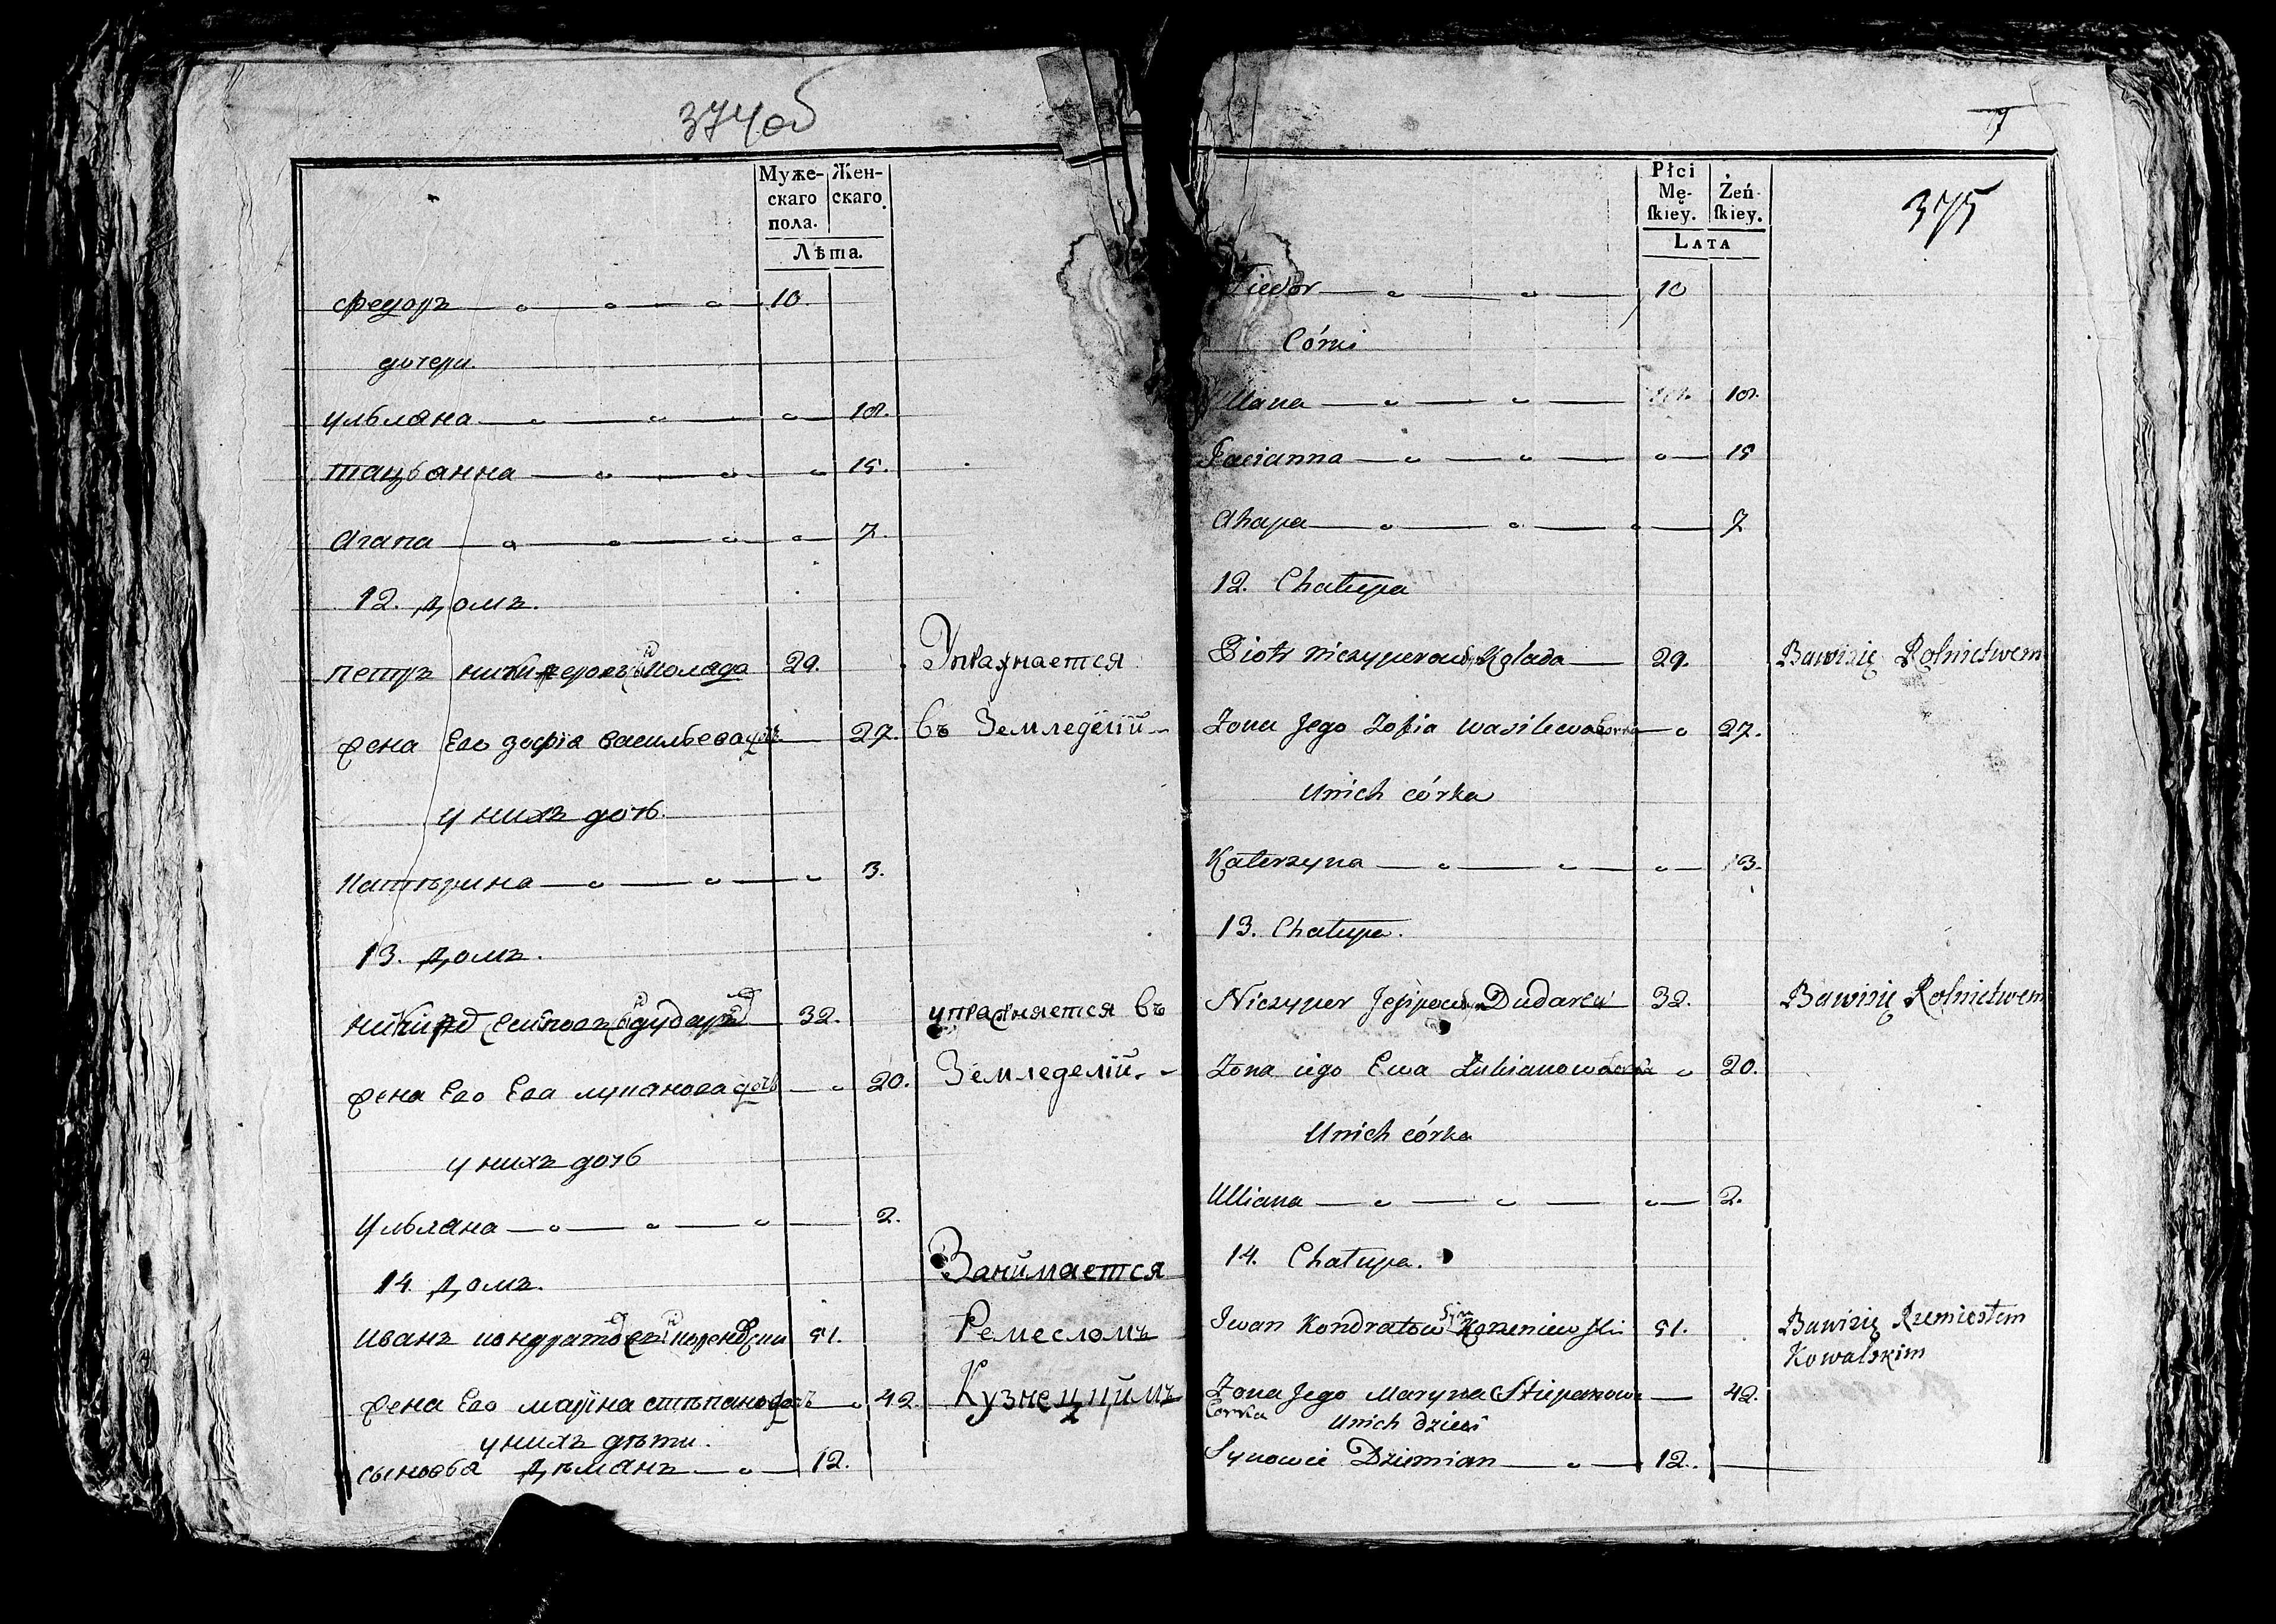 374об
Муже-
скаго
пола.
Жен-
скаго.
Лѣта.
Федоръ 10.
дочери.
Ульляна 18.
тацъянна 15.
Агапа 7.
12. домъ.
Петръ Коляда 29. Упражнается
жена Ево зофїа васильева дочь 27. въ Земледелїи
у нихъ дочь.
Катѣрина 3.
13. домъ.
32. упражняется въ
жена Ево Ева дочь 20. Земледелїи.
у нихъ дочь
Ульляна 2.
14. домъ. Занимается
Иванъ 51. Ремесломъ
жена Ево Марїна стѣпанова дочь 42. Кузнецкимъ
у нихъ дѣти.
сыновья Дѣмянъ 12.
7
375
Płci
Mę-
ſkiey.
Żeń-
ſkiey.
LATA
Fiedor 10
Córki
Ullana 18.
Tacianna 15
Ahapa 7
12. Chałupa
Piotr Niczyperow Kolada 29. Bawi się Rolnictwem
Zona Jego Zofia Wasilewa corka 27.
U nich córka
Katerzyna 3.
13. Chałupa.
Niczyper Dudarew 32. Bawi się Rolnictwem
Zona iego Ewa corka 20.
U nich córka
Ulliana 2.
14. Chałupa.
Iwan Kondratow Syn Korzeniewſki 51. Bawi się Rzemiosłem
Kowalskim
Zona Jego Maryna Stiepanowa 42.
Corka U nich dzieci
Synowie Dziemian 12.